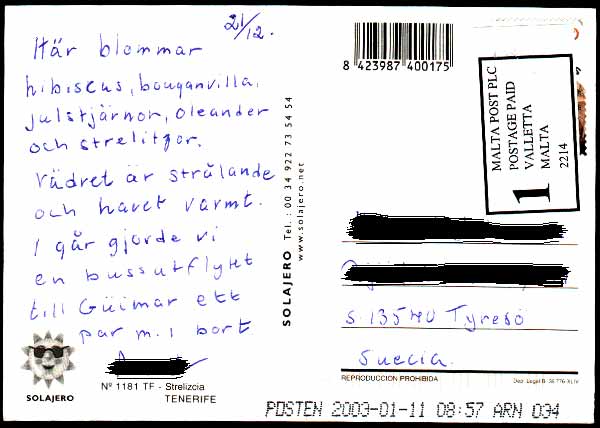 21/12.
Här blommar
hibiscus, bouganvilla,
julstjärnor, oleander
och strelitzor.
Vädret är strålande
och havet varmt.
I går gjorde vi
en bussutflykt
till Güimar ett
par m.l bort
SOLAJERO
Nº 1181 TF - Strelizcia
TENERIFE
SOLAJERO Tel.: 00 34 922 73 54 54
www.solajero.net
8 423987 400175
MALTA POST PLC
POSTAGE PAID
VALLETTA
MALTA
2214
1
S. 135 40 Tyresö
Suecia.
REPRODUCCION PROHIBIDA
Dep. Legal B. 38.776-XLIV
POSTEN 2003-01-11 08:57 ARN 034